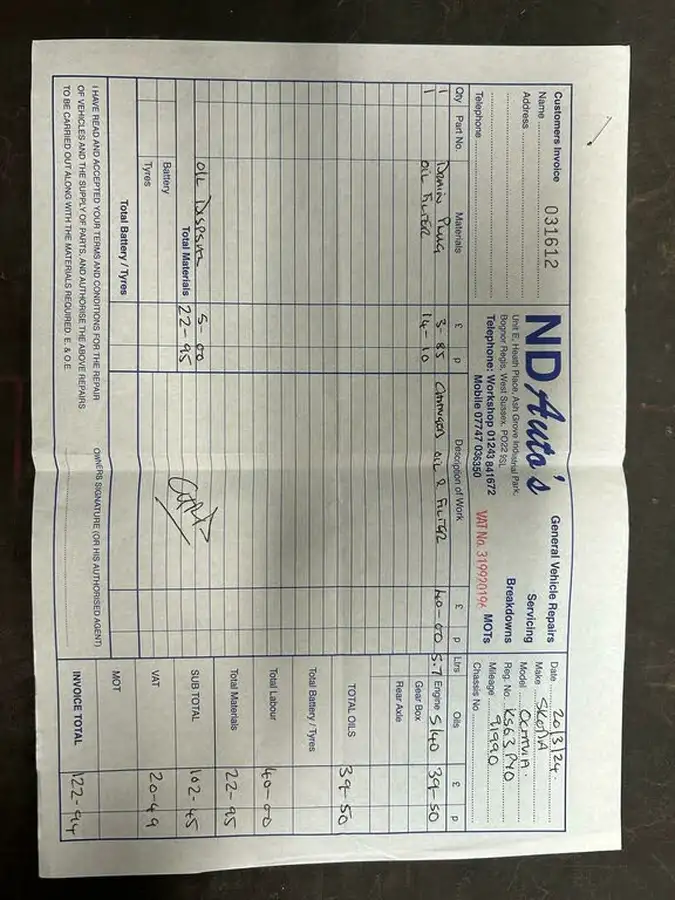 Customers Invoice 031612
Name
Address
Telephone
ND Auto's
Unit E, Heath Place, Ash Grove Industrial Park,
Bognor Regis, West Sussex, PO22 9SL
Telephone: Workshop 01243 841672
Mobile 07747 036350
General Vehicle Repairs
Servicing
Breakdowns
MOTs
VAT No. 319920196
Date 20/3/24.
Make SKODA
Model OCTAVIA.
Reg. No. KS63 PYO
Mileage 91990
Chassis No.
Qty Part No. Materials £ p Description of Work £ p Ltrs Oils £ p
1 DRAIN PLUG 3-85 CHANGED OIL & FILTER 40-00 5.7 Engine 5/40 39-50
1 OIL FILTER 14-10 Gear Box
Rear Axle
TOTAL OILS 39-50
Total Battery / Tyres
Total Labour 40-00
Total Materials 22-95
OIL DISPSAL 5-00
Total Materials 22-95
SUB TOTAL 102-45
Battery
Tyres
VAT 20-49
Total Battery / Tyres
MOT
I HAVE READ AND ACCEPTED YOUR TERMS AND CONDITIONS FOR THE REPAIR
OF VEHICLES AND THE SUPPLY OF PARTS, AND AUTHORISE THE ABOVE REPAIRS
TO BE CARRIED OUT ALONG WITH THE MATERIALS REQUIRED. E. & O.E.
OWNERS SIGNATURE (OR HIS AUTHORISED AGENT)
INVOICE TOTAL 122-94